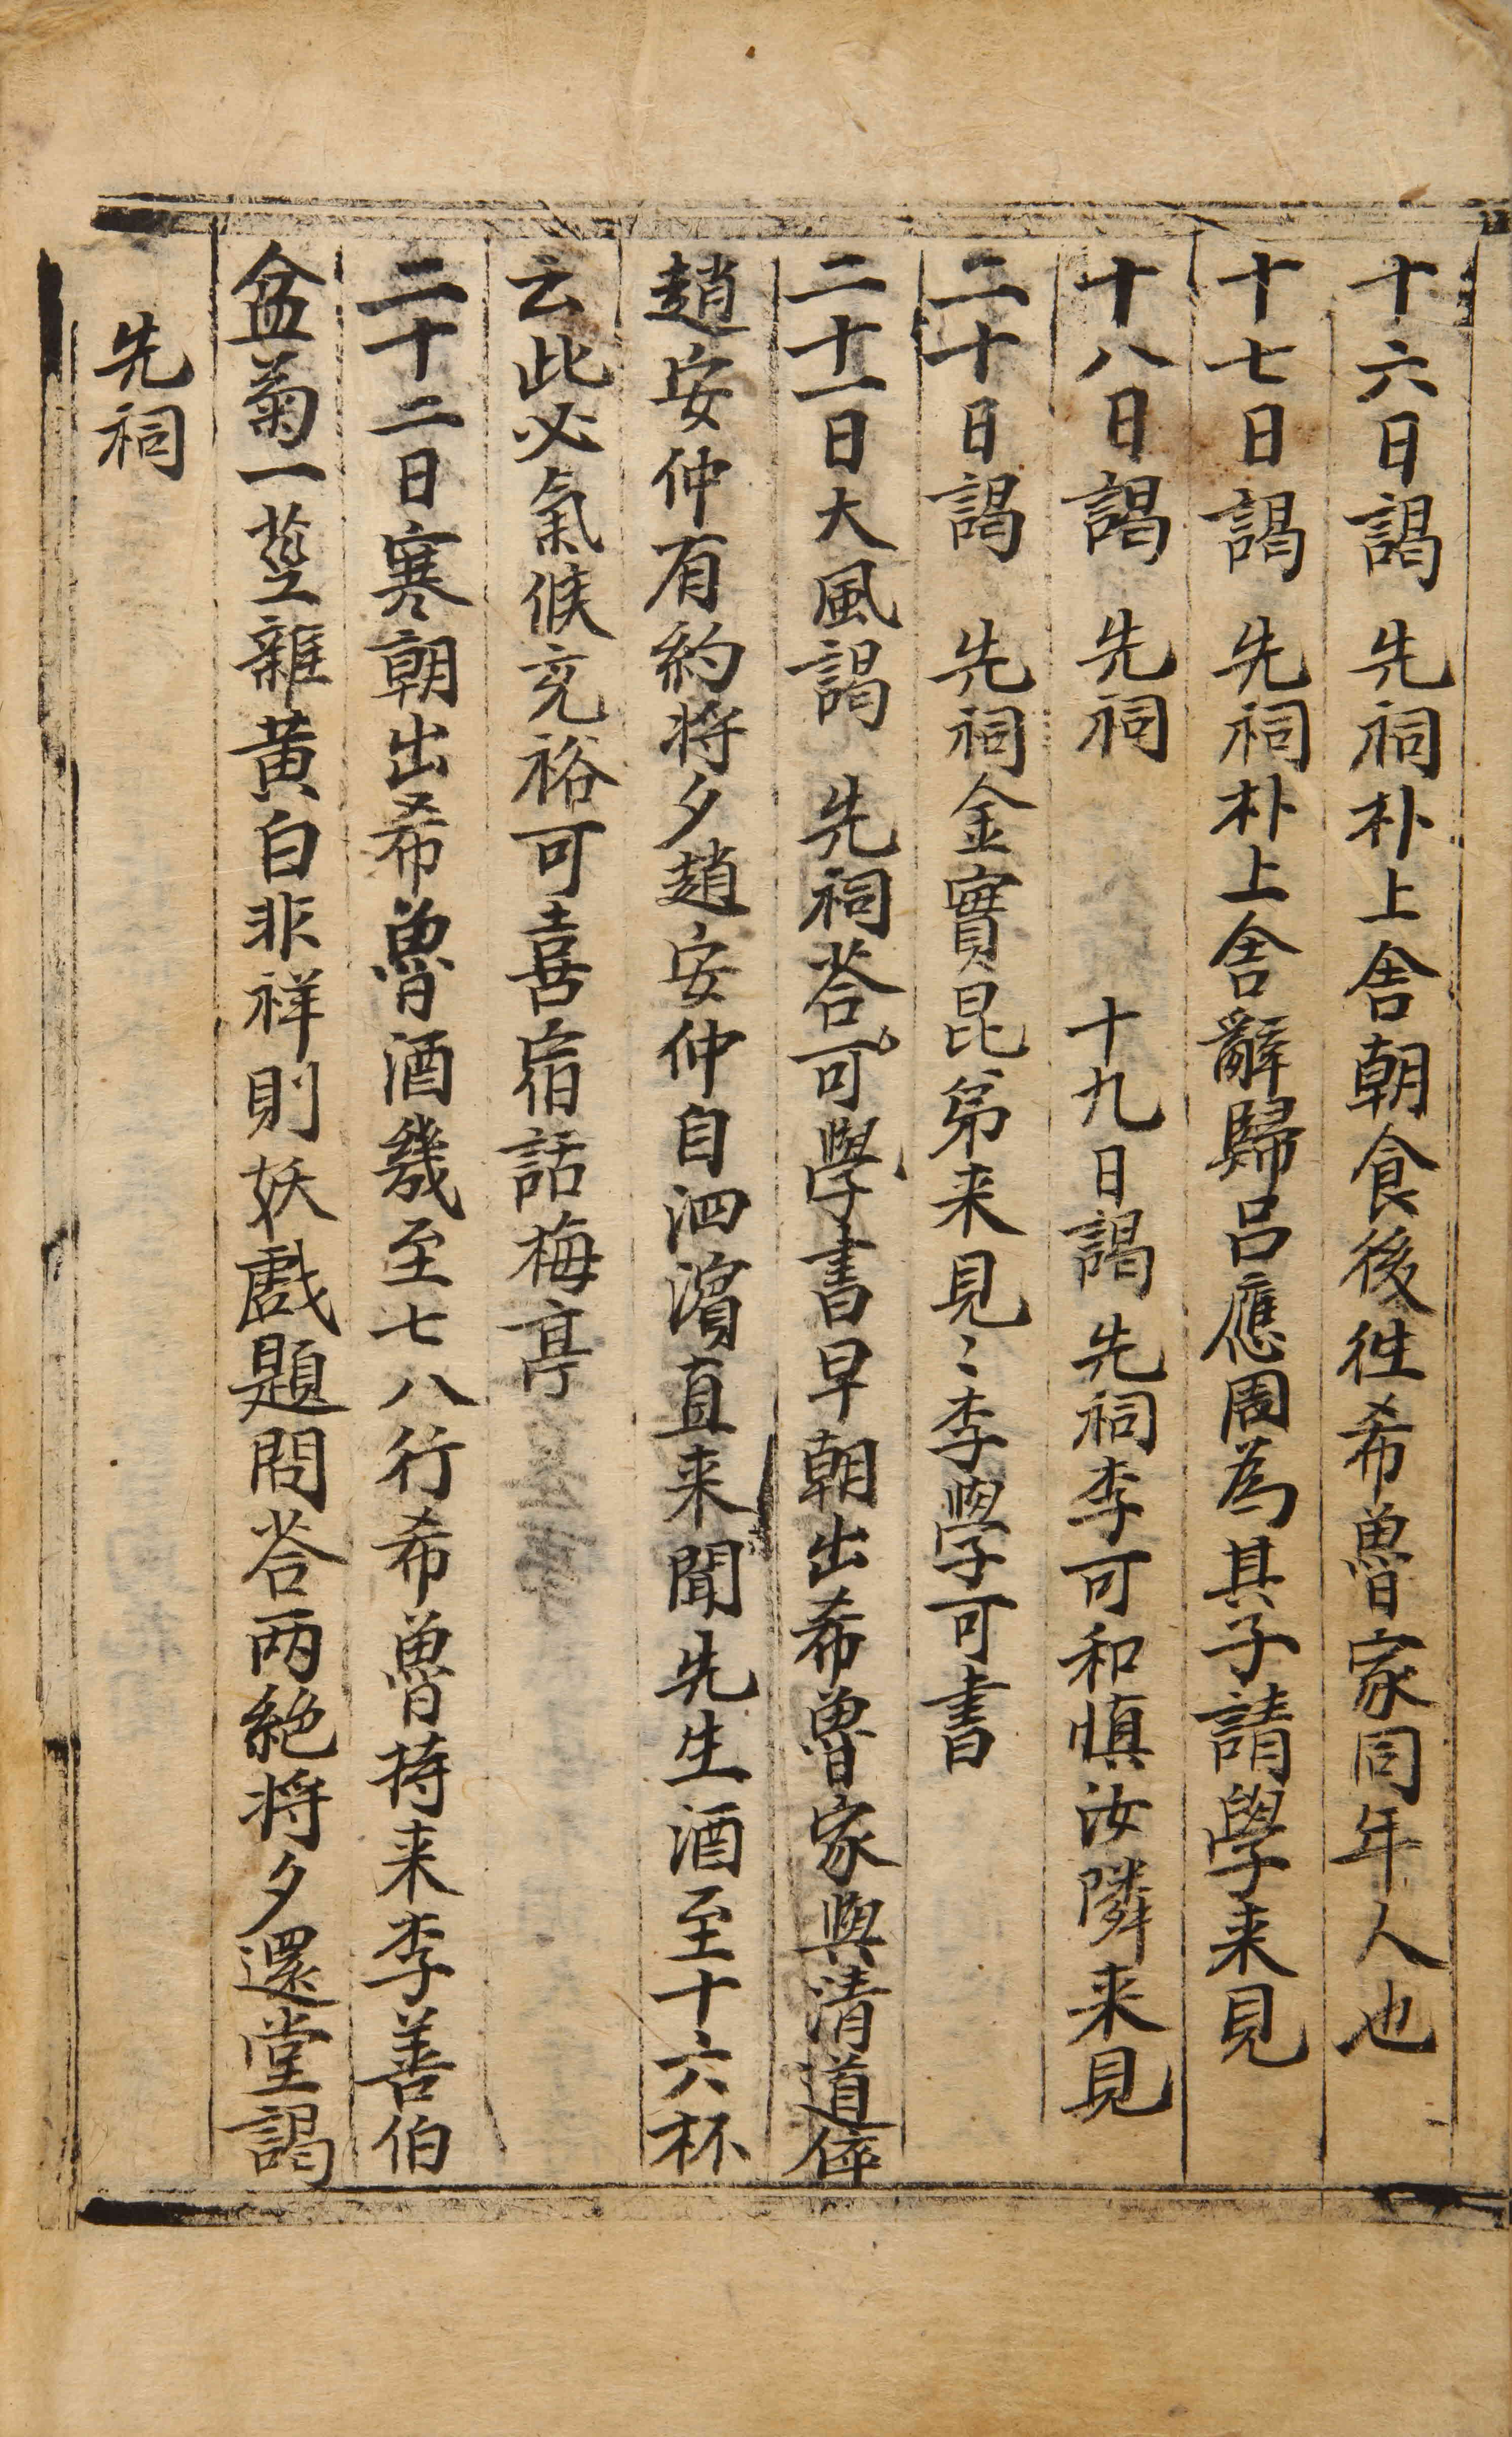 十六日謁　先祠朴上舍朝食後徃希魯家同年人也
十七日謁　先祠朴上舍辭歸呂應周爲其子請學来見
十八日謁　先祠　　十九日謁　先祠李可和愼汝隣来見
二十日謁　先祠金實昆弟来見〻李學可書
二十一日大風謁　先祠答可學書早朝出希魯家與清道倅
趙安仲有約将夕趙安仲自泗濱直来聞先生酒至十六杯
云此必氣候充裕可喜宿話梅亭
二十二日寒朝出希魯酒幾至七八行希魯持来李善伯
盆菊一莖雜黃白非祥則妖戯題問答兩絶将夕還堂謁
先祠